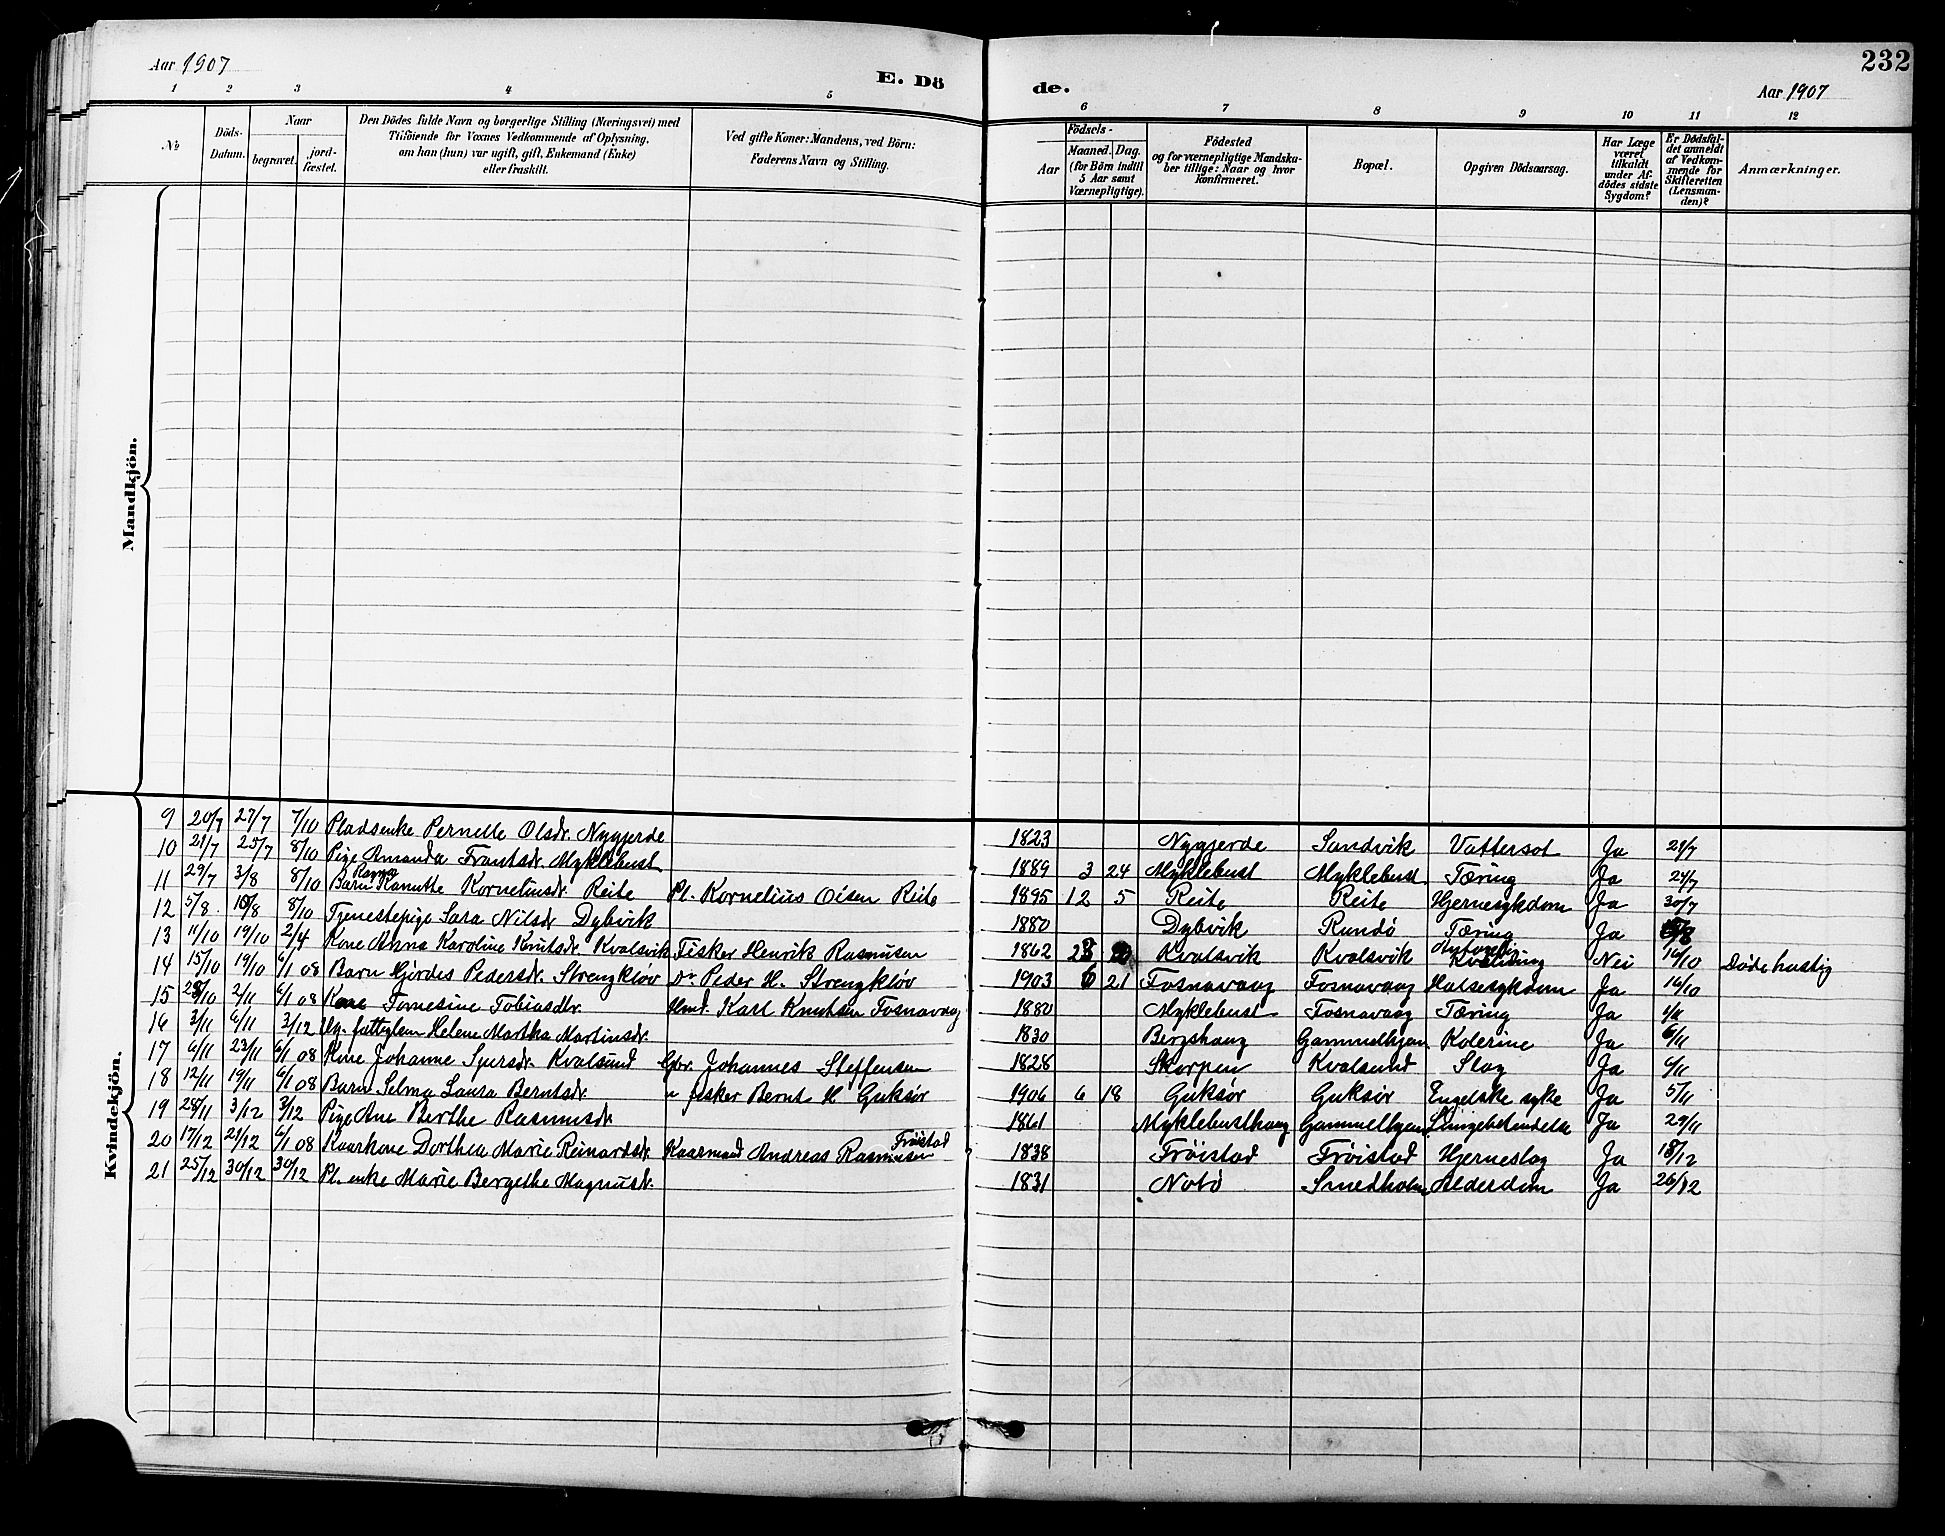 Aar 1907
E. Dö
de.
Aar 1907
232
1 2 3 4 5 6 7 8 9 10 11 12
№
Döds-
Datum.
Naar
begravet.
jord-
fæstet.
Den Dödes fulde Navn og borgerlige Stilling (Næringsvei) med
Tilföiende for Voxnes Vedkommende af Oplysning,
om han (hun) var ugift, gift, Enkemand (Enke)
eller fraskilt.
Ved gifte Koner: Mandens, ved Börn:
Faderens Navn og Stilling.
Födsels-
Aar
Maaned. Dag.
(for Börn indtil
5 Aar samt
Værnepligtige).
Födested
og for værnepligtige Mandska-
ber tillige: Naar og hvor
konfirmeret.
Bopæl.
Opgiven Dödsaarsag.
Har Læge
været
tilkaldt
under Af-
dödes sidste
Sygdom?
Er Dödsfal-
det anmeldt
af Vedkom-
mende for
Skifteretten
(Lensman-
den)?
Anmærkninger.
Mandkjön.
Kvindekjön.
9 20/7 27/7 7/10 Pladsenke Pernelle Olsdr. Nygjerde 1823 Nygjerde Sandvik Vattersot Ja 21/7
10 21/7 25/7 8/10 Pige Amanda Frantsdr. Myklebust 1889 3 24 Myklebust Myklebust Tæring Ja 24/7
11 29/7 3/8 8/10 Barn Kanutte Korneliusdr. Reite Pl. Kornelius Olsen Reite 1895 12 5 Reite Reite Hjernesykdom Ja 30/7
12 5/8 10/8 8/10 Tjenestepige Sara Nilsdr Dybvik 1880 Dybvik Rundö Tæring Ja
13 11/10 19/10 2/4 Kone Anna Karoline Knutsdr. Kvalsvik Fisker Henrik Rasmusen 1862 Kvalsvik Kvalsvik Kvælning Nei 16/10 Døde hastig
14 15/10 19/10 6/1 08 Barn Hjördes Pedersdr. Strengkløv Dr Peder H. Strengkløv 1903 6 21 Fosnavaag Fosnavaag Halsesykdom Ja 16/10
15 28/10 2/11 6/1 08 Kone Tomesine Tobiasdtr. Karl Knutsen Fosnavaag 1880 Myklebust Fosnavaag Tæring Ja 1/11
16 3/11 6/11 3/12 Ug. fattiglem Helene Martha Martinsdr. 1830 Bergshaug Gammelhjem Kolerine Ja 6/11
17 6/11 23/11 6/1 08 Kone Johanne Syersdr. Kvalsund Gbr. Johannes Steffensen 1828 Skorpen Kvalsund Slag Ja 6/11
18 12/11 19/11 6/1 08 Barn Selma Laura Berntsdr. " fisker Bernt H Guksør 1906 6 18 Guksør Guksør Engelske syke Ja 5/11
19 28/11 3/12 3/12 Pige Ane Berthe Rasmusdr. 1861 Myklebusthaug Gammelhjem Lungebetendelse Ja 29/11
20 17/12 21/12 6/1 08 Kaarkone Dorthea Marie Reinardsdr. Kaarmand Andreas Rasmusen Frøistad 1838 Frøistad Frøistad Hjerneslag Ja 18/12
21 25/12 30/12 30/12 Pl. enke Marie Bergethe Magnusdr. 1831 Notø Smedholm Alderdom Ja 26/12